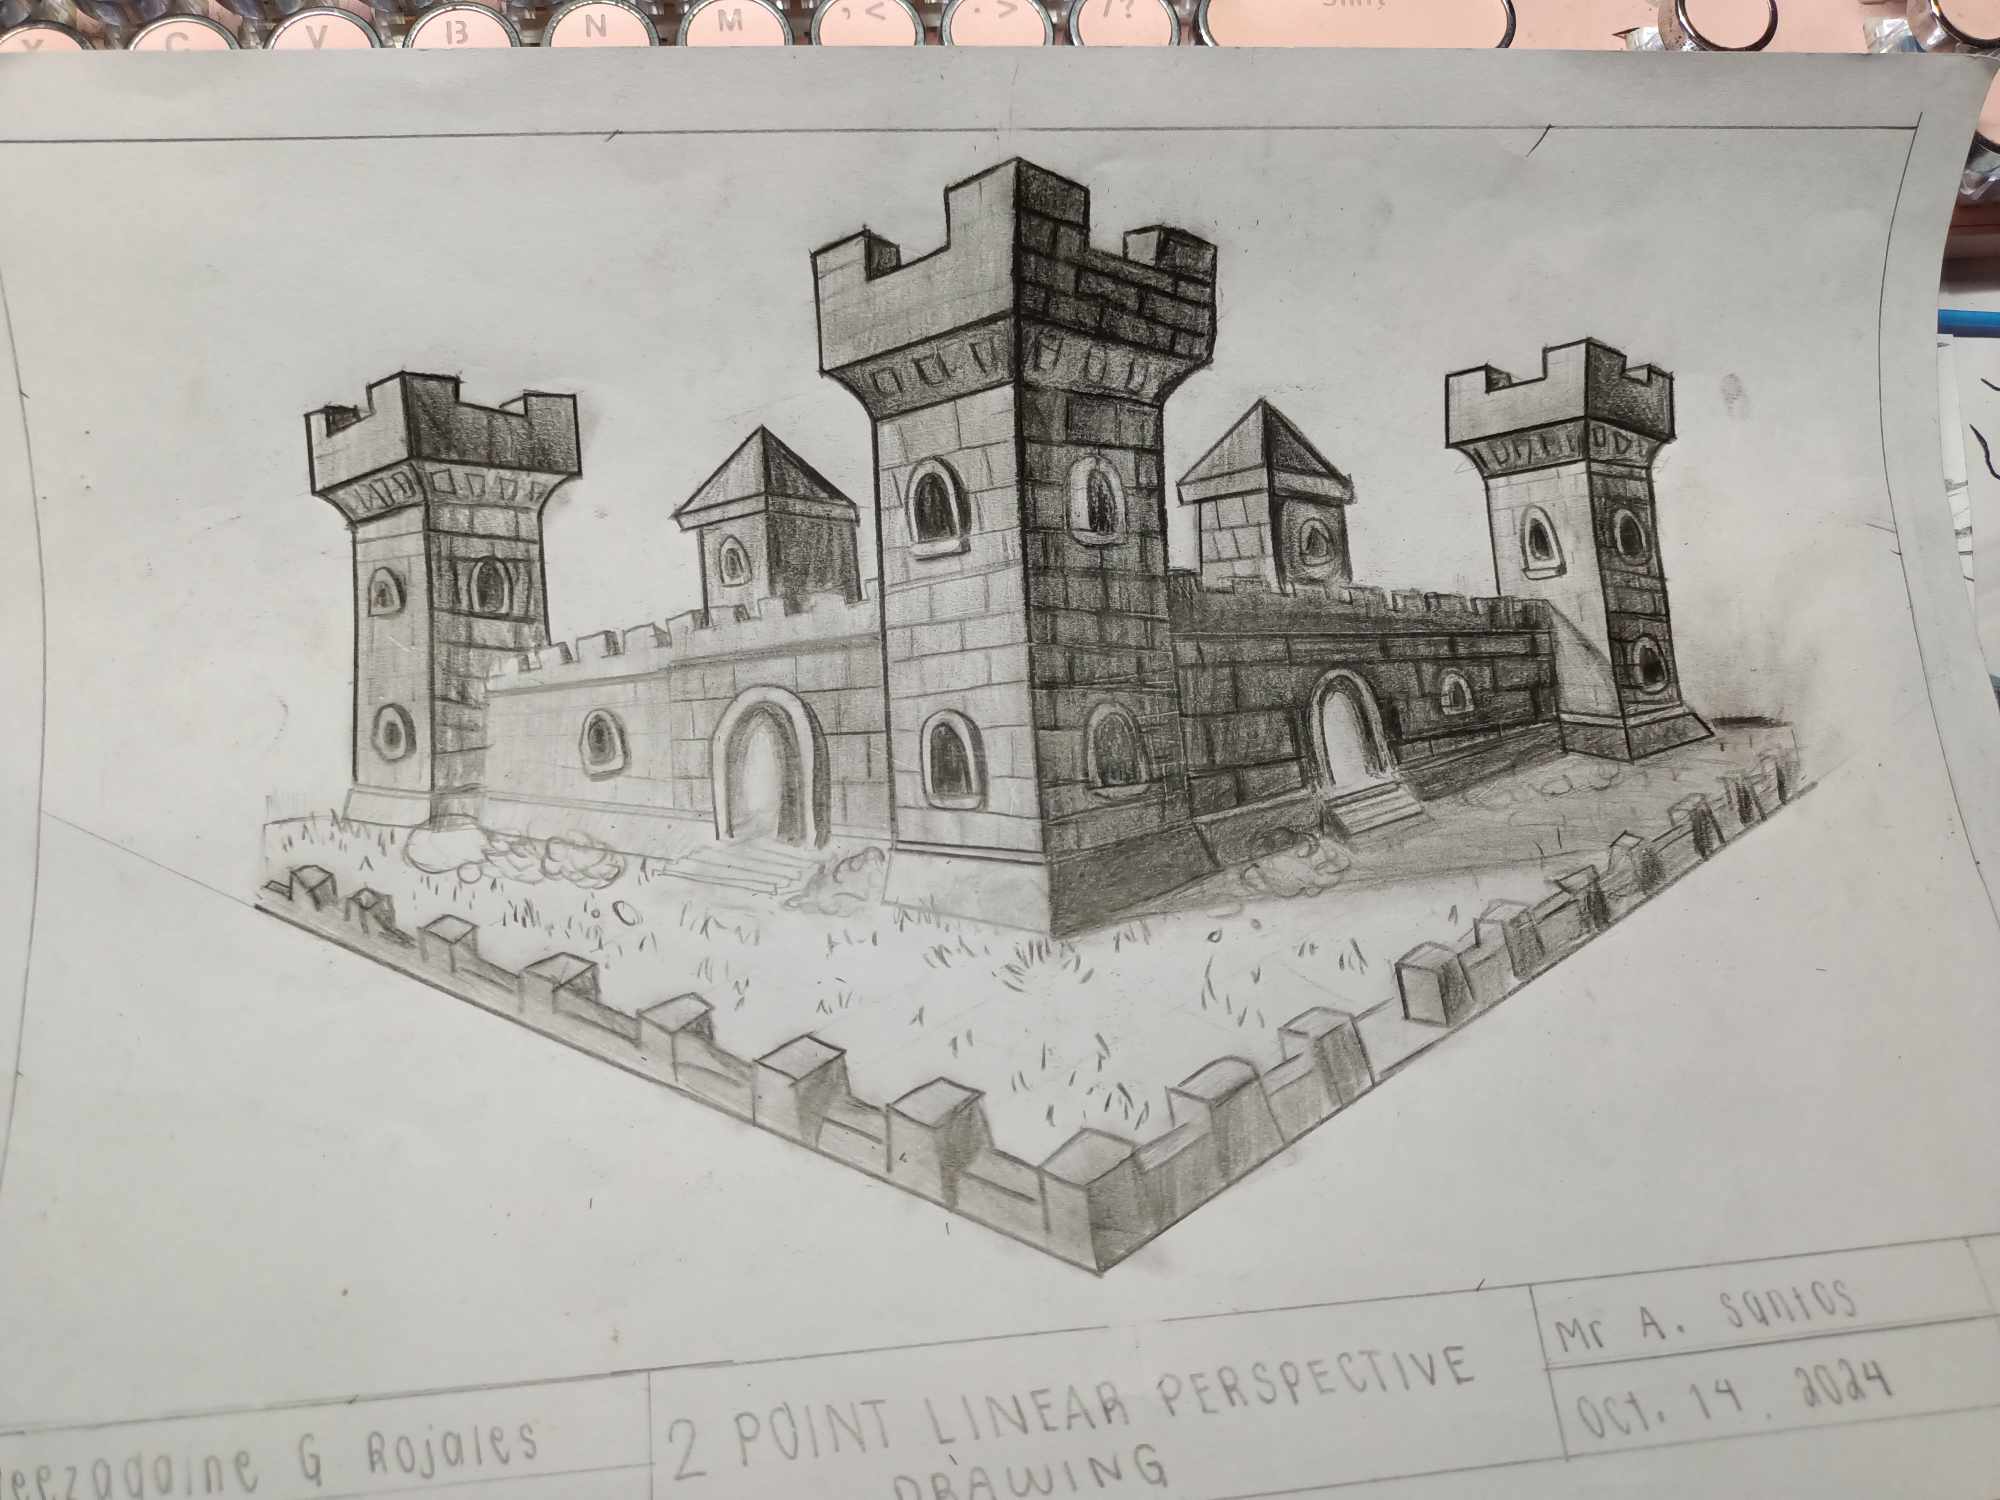 X C V B N M , < . > / ? Shift
G Rojales
2 POINT LINEAR PERSPECTIVE
DRAWING
Mr A. Santos
Oct. 14. 2024